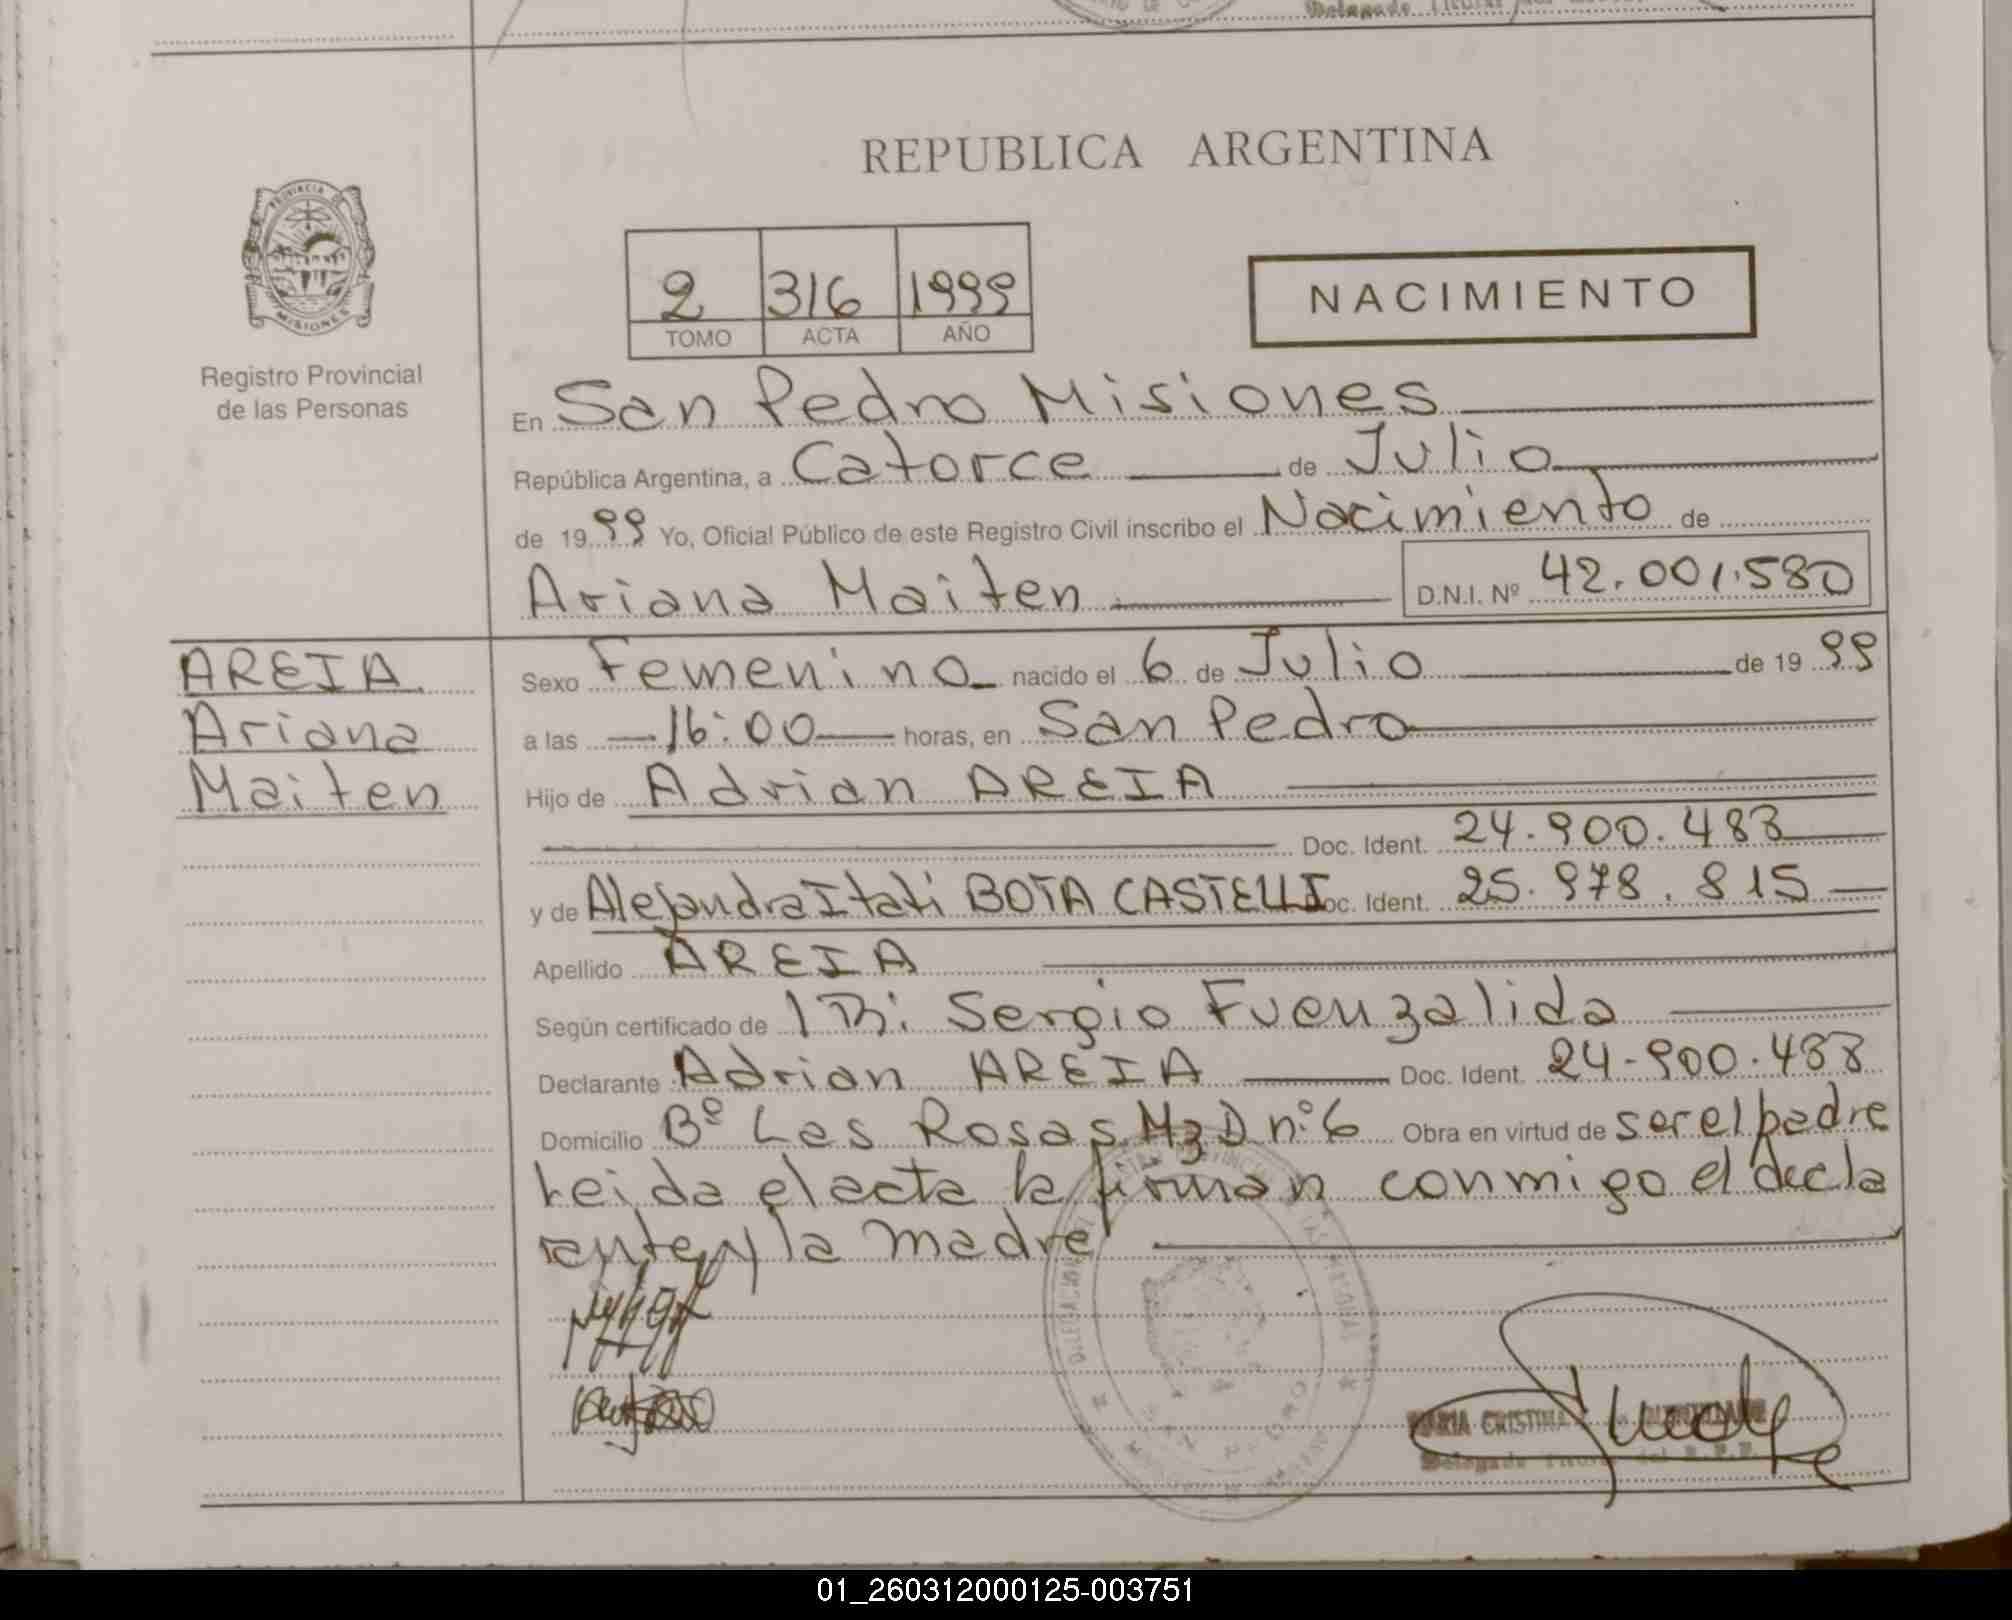 REPUBLICA ARGENTINA
PROVINCIA DE MISIONES
Registro Provincial
de las Personas
2 316 1999
TOMO ACTA AÑO
NACIMIENTO
En San Pedro Misiones
República Argentina, a Catorce de Julio
de 19 99 Yo, Oficial Público de este Registro Civil inscribo el Nacimiento de
Ariana Maiten D.N.I. Nº 42.001.580
AREIA
Ariana
Maiten
Sexo Femenino nacido el 6 de Julio de 19 99
a las 16:00 horas, en San Pedro
Hijo de Adrian AREIA
Doc. Ident. 24.900.488
y de Alejandra Itati BOTA CASTELLI Doc. Ident. 25.978.815
Apellido AREIA
Según certificado de Sergio Fuenzalida
Declarante Adrian AREIA Doc. Ident. 24-900.488
Domicilio Bº Las Rosas Mz D nº 6 Obra en virtud de ser el padre
Leida el acta la firman conmigo el decla
rante y la madre
MARIA CRISTINA
Delegado Titular del R.P.P.
01_260312000125-003751